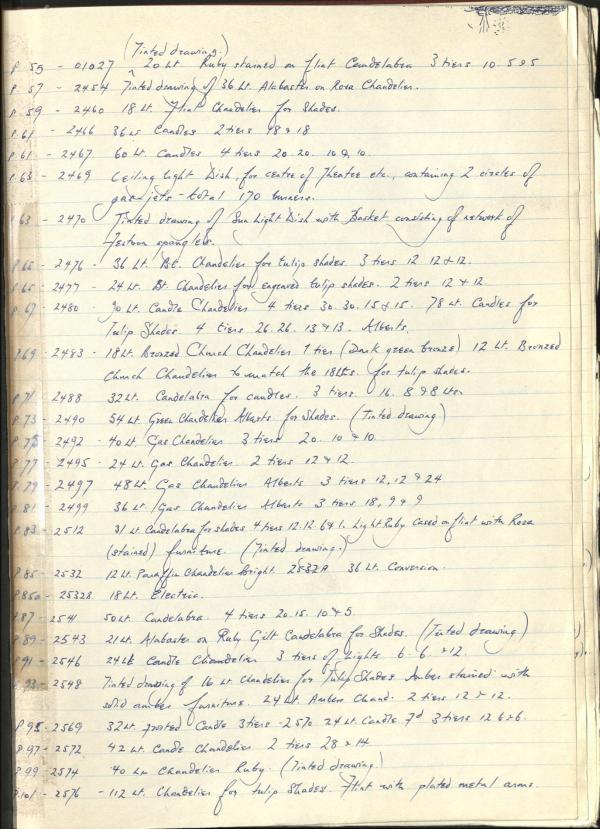 (Tinted drawing.)
P. 55 - 01027 20 Lt Ruby stained on flint Candelabra 3 tiers 10 5 & 5
P. 57 - 2454 Tinted drawing of 36 Lt. Alabaster on Rosa Chandelier.
P. 59 - 2460 18 Lt. Flint Chandelier for Shades.
P. 61 - 2466 36 Lt Candles 2 tiers 18 & 18
P. 61 - 2467 60 Lt. Candles 4 tiers 20. 20. 10 & 10.
P. 63 - 2469 Ceiling light Dish, for centre of Theatre etc., containing 2 circles of
gas jets - total 170 burners.
P. 63 - 2470 Tinted drawing of Sun Light Dish with Basket consisting of network of
festoon spangles.
P. 65 - 2476 - 36 Lt. Bt. Chandelier for tulip shades 3 tiers 12. 12 & 12.
P. 65 - 2477 - 24 Lt. Bt Chandelier for engraved tulip shades. 2 tiers 12 & 12.
P. 67 - 2480 - 90 Lt. Candle Chandelier 4 tiers 30. 30. 15 & 15. 78 Lt. Candles for
Tulip Shades. 4 tiers 26. 26. 13 & 13. Alberts.
P. 69 - 2483 - 18 Lt. Bronzed Church Chandelier 1 tier (Dark green bronze) 12 Lt. Bronzed
Church Chandelier to match the 18Lts. for tulip shades.
P. 71 - 2488 32 Lt. Candelabra for candles. 3 tiers. 16. 8 & 8 Lts
P. 73 - 2490 54 Lt. Green Chandelier Alberts for Shades. (Tinted drawing)
P. 75 - 2492 - 40 Lt. Gas Chandelier 3 tiers 20. 10 & 10.
P. 77 - 2495 - 24 Lt. Gas Chandelier. 2 tiers 12 & 12.
P. 79 - 2497 48 Lt. Gas Chandelier Alberts 3 tiers 12, 12 & 24
P. 81 - 2499 36 Lt. Gas Chandelier Alberts 3 tiers 18, 9 & 9
P. 83 - 2512 31 Lt. Candelabra for shades 4 tiers 12. 12. 6 & 1. Light Ruby cased on flint with Rosa
(stained) furniture. (Tinted drawing.)
P. 85 - 2532 12 Lt. Paraffin Chandelier Bright. 2532A 36 Lt. Conversion.
P. 85a - 2532B 18 Lt. Electric.
P. 87 - 2541 50 Lt Candelabra 4 tiers 20. 15. 10 & 5
P. 89 - 2543 21 Lt. Alabaster on Ruby Gilt Candelabra for Shades. (Tinted drawing)
P. 91 - 2546 24 Lt Candle Chandelier 3 tiers of Lights 6. 6. & 12.
P. 93 - 2548 Tinted drawing of 16 Lt Chandelier for Tulip Shades Amber stained with
solid amber furniture. 24 Lt. Amber Chand. 2 tiers 12 & 12.
P. 95 - 2569 32 Lt frosted Candle 3 tiers - 2570 24 Lt. Candle 3 tiers 12 6 & 6.
P. 97 - 2572 42 Lt. Candle Chandelier 2 tiers 28 & 14
P. 99 - 2574 40 Lt Chandelier Ruby. (Tinted drawing)
P. 101 - 2576 - 112 Lt. Chandelier for tulip Shades. Flint with plated metal arms.